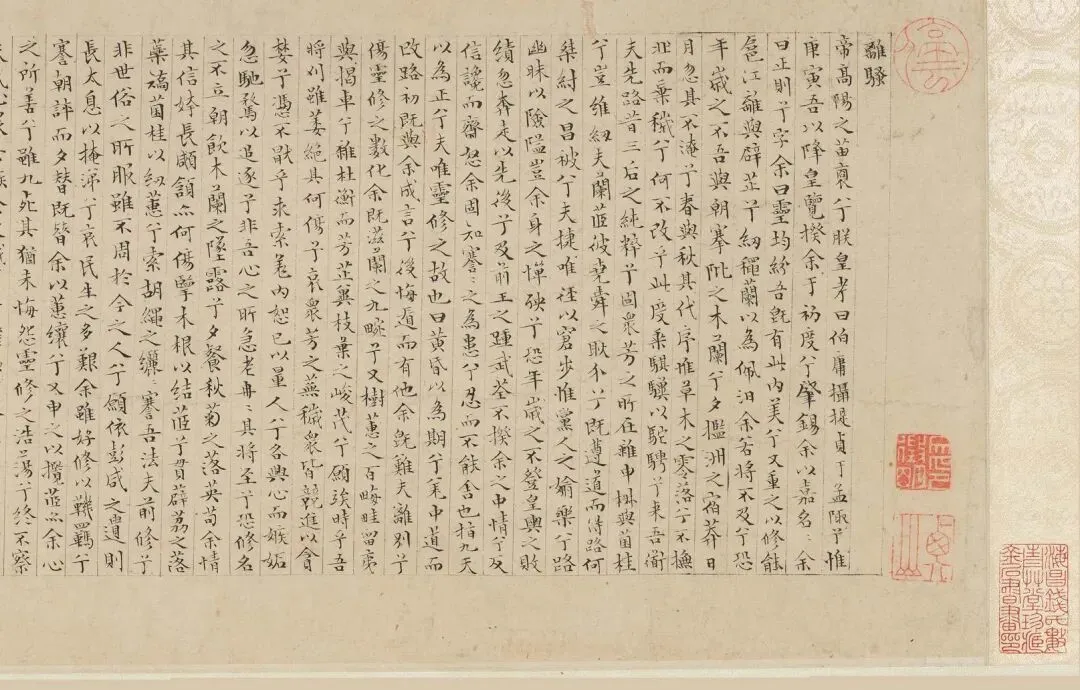 離騷
帝高陽之苗裔兮朕皇考曰伯庸攝提貞于孟陬兮惟
庚寅吾以降皇覽揆余于初度兮肇錫余以嘉名:余
曰正則兮字余曰靈均紛吾旣有此內美兮又重之以修能
扈江離與辟芷兮紉繩蘭以為佩汨余若將不及兮恐
年歲之不吾與朝搴阰之木蘭兮夕擥洲之宿莽日
月忽其不淹兮春與秋其代序惟草木之零落兮不撫
壯而棄穢兮何不改乎此度乘騏驥以駝騁兮來吾導
夫先路昔三后之純粹兮固眾芳之所在雜申椒與菌桂
兮豈維紉夫蘭茝彼堯舜之耿介兮既遵道而得路何
桀紂之昌被兮夫捷唯徑以窘步惟黨人之媮樂兮路
幽昧以險隘豈余身之憚殃兮恐年歲之不登皇輿之敗
績忽奔走以先後兮及前王之踵武荃不揆余之中情兮反
信讒而齌怒余固知謇:之為患兮忍而不能舍也指九天
以為正兮夫唯靈修之故也曰黃昏以為期兮羌中道而
改路初既與余成言兮後悔遁而有他余既難夫離別兮
傷靈修之數化余既滋蘭之九畹兮又樹蕙之百畝畦留夷
與揭車兮雜杜衡而芳芷冀枝葉之峻茂兮願竢時乎吾
將刈雖萎絕其何傷兮哀眾芳之蕪穢眾皆競進以貪
婪兮憑不猒乎求索羌內恕己以量人兮各興心而嫉妬
忽馳騖以追逐兮非吾心之所急老冉:其將至兮恐修名
之不立朝飲木蘭之墜露兮夕餐秋菊之落英苟余情
其信姱長顑頷亦何傷擥木根以結茝兮貫薜荔之落
蘂矯菌桂以紉蕙兮索胡繩之纚:謇吾法夫前修兮
非世俗之所服雖不周於今之人兮願依彭咸之遺則
長太息以掩涕兮哀民生之多艱余雖好修以鞿羈兮
謇朝誶而夕替既替余以蕙纕兮又申之以攬茝亦余心
之所善兮雖九死其猶未悔怨靈修之浩蕩兮終不察